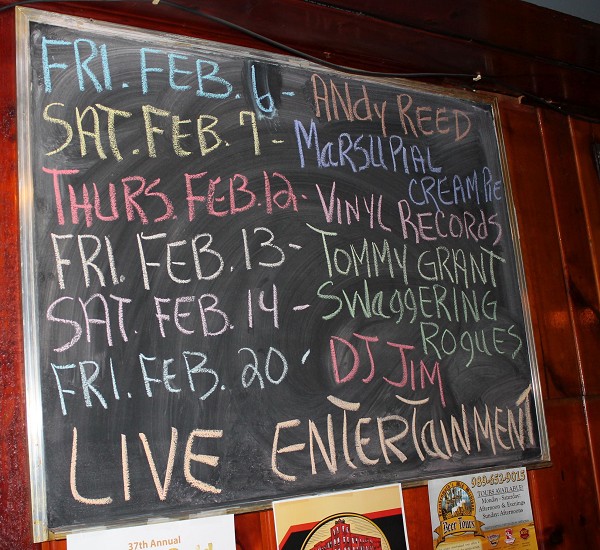 FRI. FEB. 6 - ANdy REED
SAT. FEB. 7 - MaRSUPIAL
CREAM PIE
THURS. FEB. 12 - VINYL RECORDS
FRI. FEB. 13 - TOMMY GRANT
SAT. FEB. 14 - SWaGGERING
ROGUES
FRI. FEB. 20 - DJ JIM
LIVE ENTERTaINMENT
37th Annual
989-652-9015
TOURS AVAILABLE!
Monday - Saturday
Days and Evenings
Sunday Afternoons
Beer Tours